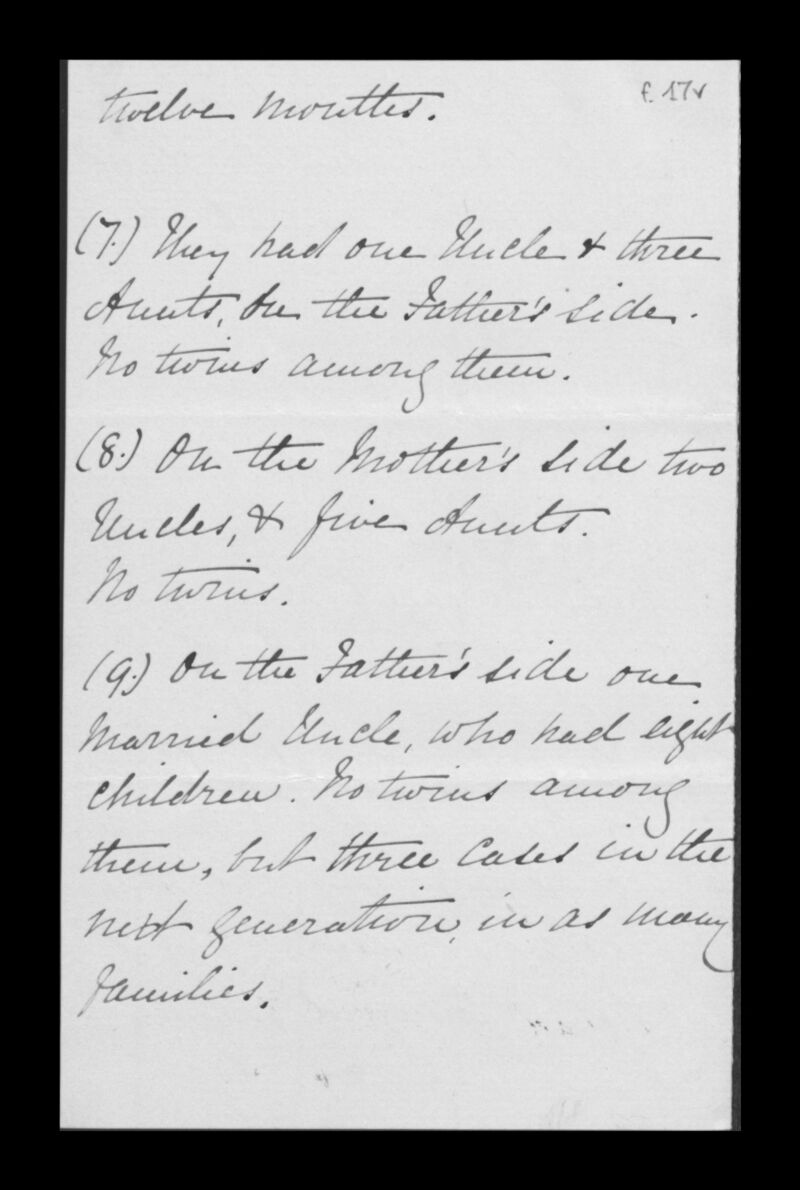 f. 17v
twelve months.
(7.) They had one Uncle & three
Aunts, On the Father's side.
No twins among them.
(8.) On the Mother's side two
Uncles, & five Aunts.
No twins.
(9.) On the Father's side one
Married Uncle, who had eight
children. No twins among
them, but three cases in the
next generation, in as many
families.